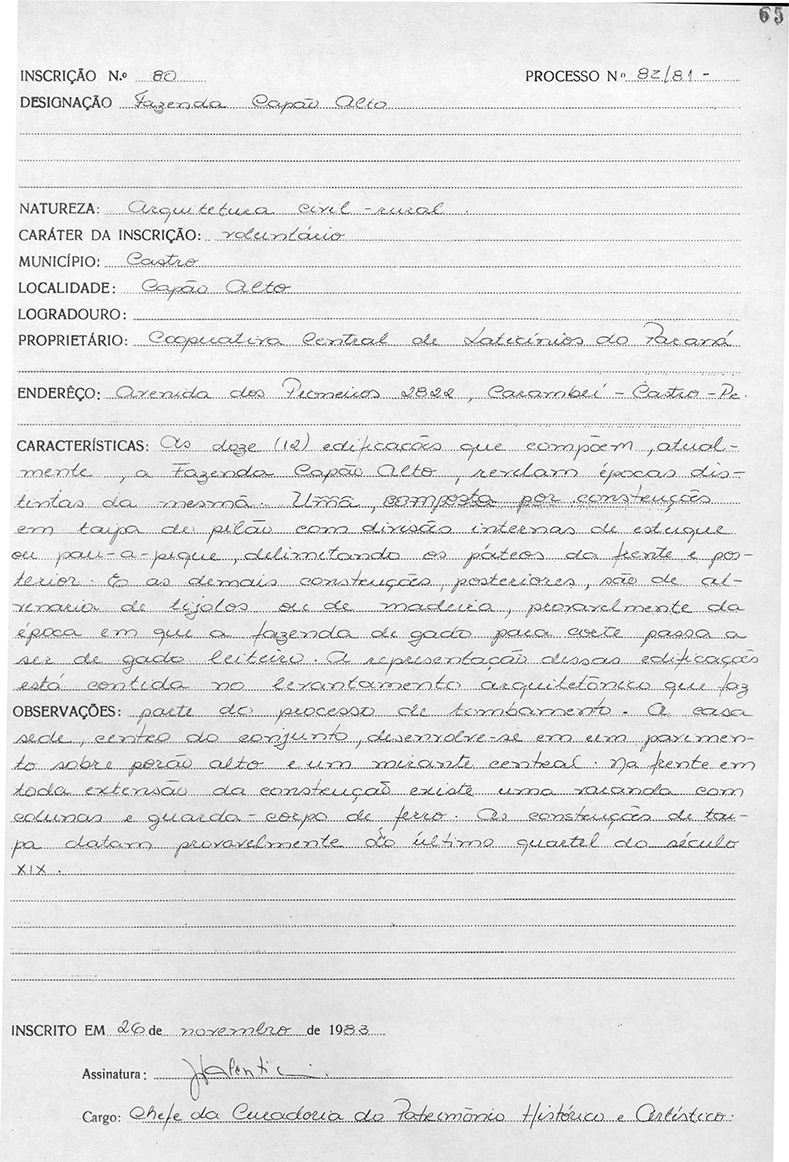 65
INSCRIÇÃO N.º 80 PROCESSO Nº 82/81 -
DESIGNAÇÃO Fazenda Capão Alto
NATUREZA: Arquitetura civil - rural.
CARÁTER DA INSCRIÇÃO: voluntário
MUNICÍPIO: Castro
LOCALIDADE: Capão Alto
LOGRADOURO:
PROPRIETÁRIO: Cooperativa Central de Laticínios do Paraná
ENDERÊÇO: Avenida dos Pioneiros 2822, Carambeí - Castro - Pr.
CARACTERÍSTICAS: As doze (12) edificações que compõem, atual-
mente, a Fazenda Capão Alto, revelam épocas dis-
tintas da mesma. Uma, composta por construções
em taipa de pilão com divisão internas de estuque
ou pau-a-pique, delimitando os páteos da frente e pos-
terior. E as demais construções, posteriores, são de al-
venaria de tijolos ou de madeira, provavelmente da
época em que a fazenda de gado para corte passa a
ser de gado leiteiro. A representação dessas edificações
está contida no levantamento arquitetônico que faz
OBSERVAÇÕES: parte do processo de tombamento. A casa
sede, centro do conjunto, desenvolve-se em um pavimen-
to sobre porão alto e um mirante central. Na frente em
toda extensão da construção existe uma varanda com
colunas e guarda-corpo de ferro. As construções de tai-
pa datam provavelmente do último quartel do século
XIX.
INSCRITO EM 26 de novembro de 1983
Assinatura:
Cargo: Chefe da Curadoria do Patrimônio Histórico e Artístico.